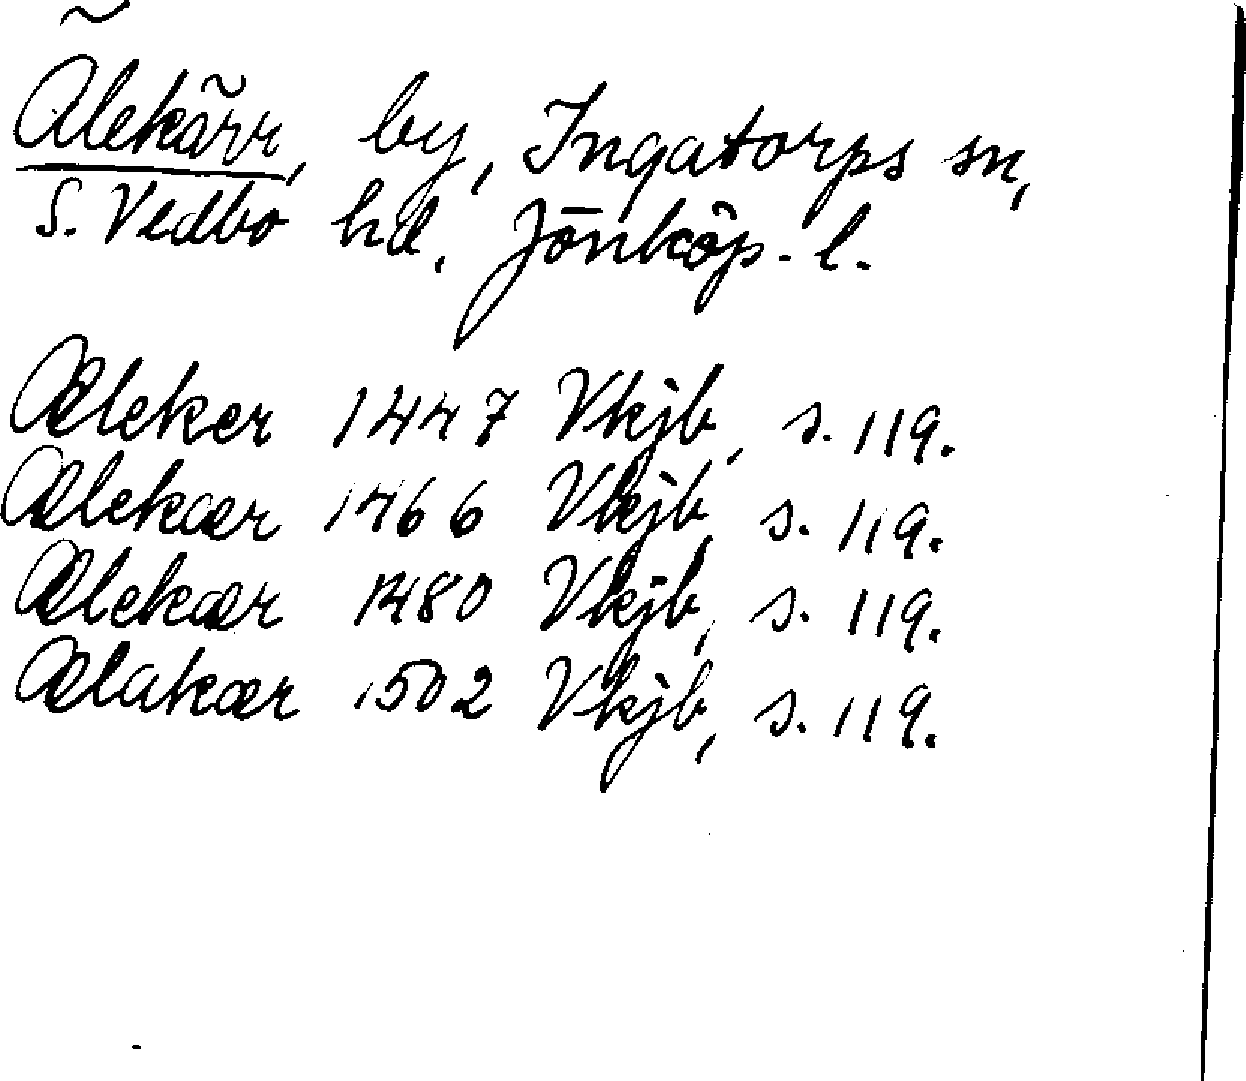 Älekärr, by, Ingatorps sn,
S. Vedbo hd. Jönköp. l.
Æleker 1447 Vkjb, s. 119.
Ælekær 1466 Vkjb, s. 119.
Ælekær 1480 Vkjb, s. 119.
Ælakær 1502 Vkjb, s. 119.